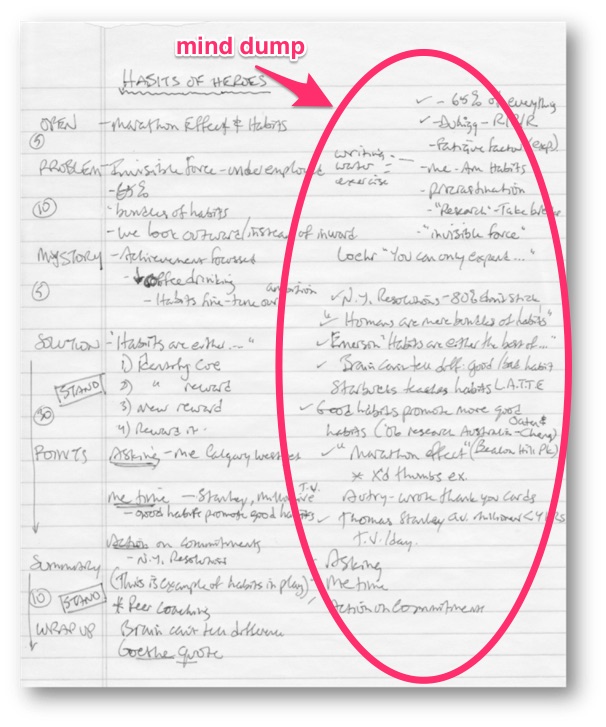 mind dump
HABITS OF HEROES
OPEN - Marathon Effect & Habits
5
PROBLEM - Invisible force - underemployed
- 65%
10
"bundles of habits
- we look outward/instead of inward
MY STORY - Achievement focused
- coffee drinking
5
- Habits fine-tune our
SOLUTION - "Habits are either..."
1) Identify Cue
STAND
2) " reward
30
3) New reward
4) Reward it.
POINTS Asking - me Calgary
me time - Stanley, Millionaire T.V.
- Good habits promote good habits
Action on commitments
SUMMARY - N.Y. Resolutions
(This is example of habits in play)
10 STAND
* Peer Coaching
WRAP UP Brain can't tell difference
Goethe quote
- 65% of everything
- Duhigg - R/R/R
- Fatigue Factor (exp)
writing
water
exercise
- me - Am Habits
- procrastination
- "Research" - Take
- "invisible force"
Loehr "You can only expect..."
N.Y. Resolutions - 80% don't stick
"Humans are mere bundles of habits"
Emerson "Habits are either the best of..."
Brain can't tell diff. good/bad habit
Starbucks teaches habits L.A.T.T.E
Good habits promote more good
habits ('06 research Australia - Oaten & Cheng)
" Marathon effect" (Beacon Hill Pk)
* X'd thumbs ex.
Autry - wrote thank you cards
Thomas Stanley av. millionaire < 
T.V./day.
- Asking
- Me time
Action on Commitment